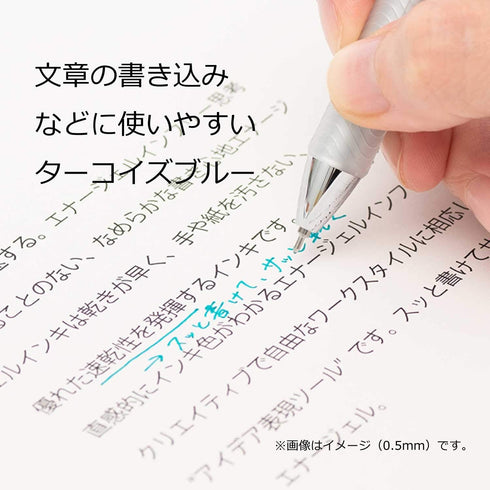 文章の書き込み
などに使いやすい
ターコイズブルー
思考
エナージェルインフリー
する。エナージ
ることのない、なめらかな書き心地エナージ
ェルインキは乾きが早く、手や紙を汚さない、
優れた速乾性を発揮するインキです
→スッと書けて、サッと
直感的にインキ色がわかるエナージェルインフ
クリエイティブで自由なワークスタイルに相応し
"アイデア表現ツール"です。スッと書けてサ
エナージェル。
※画像はイメージ（0.5mm）です。